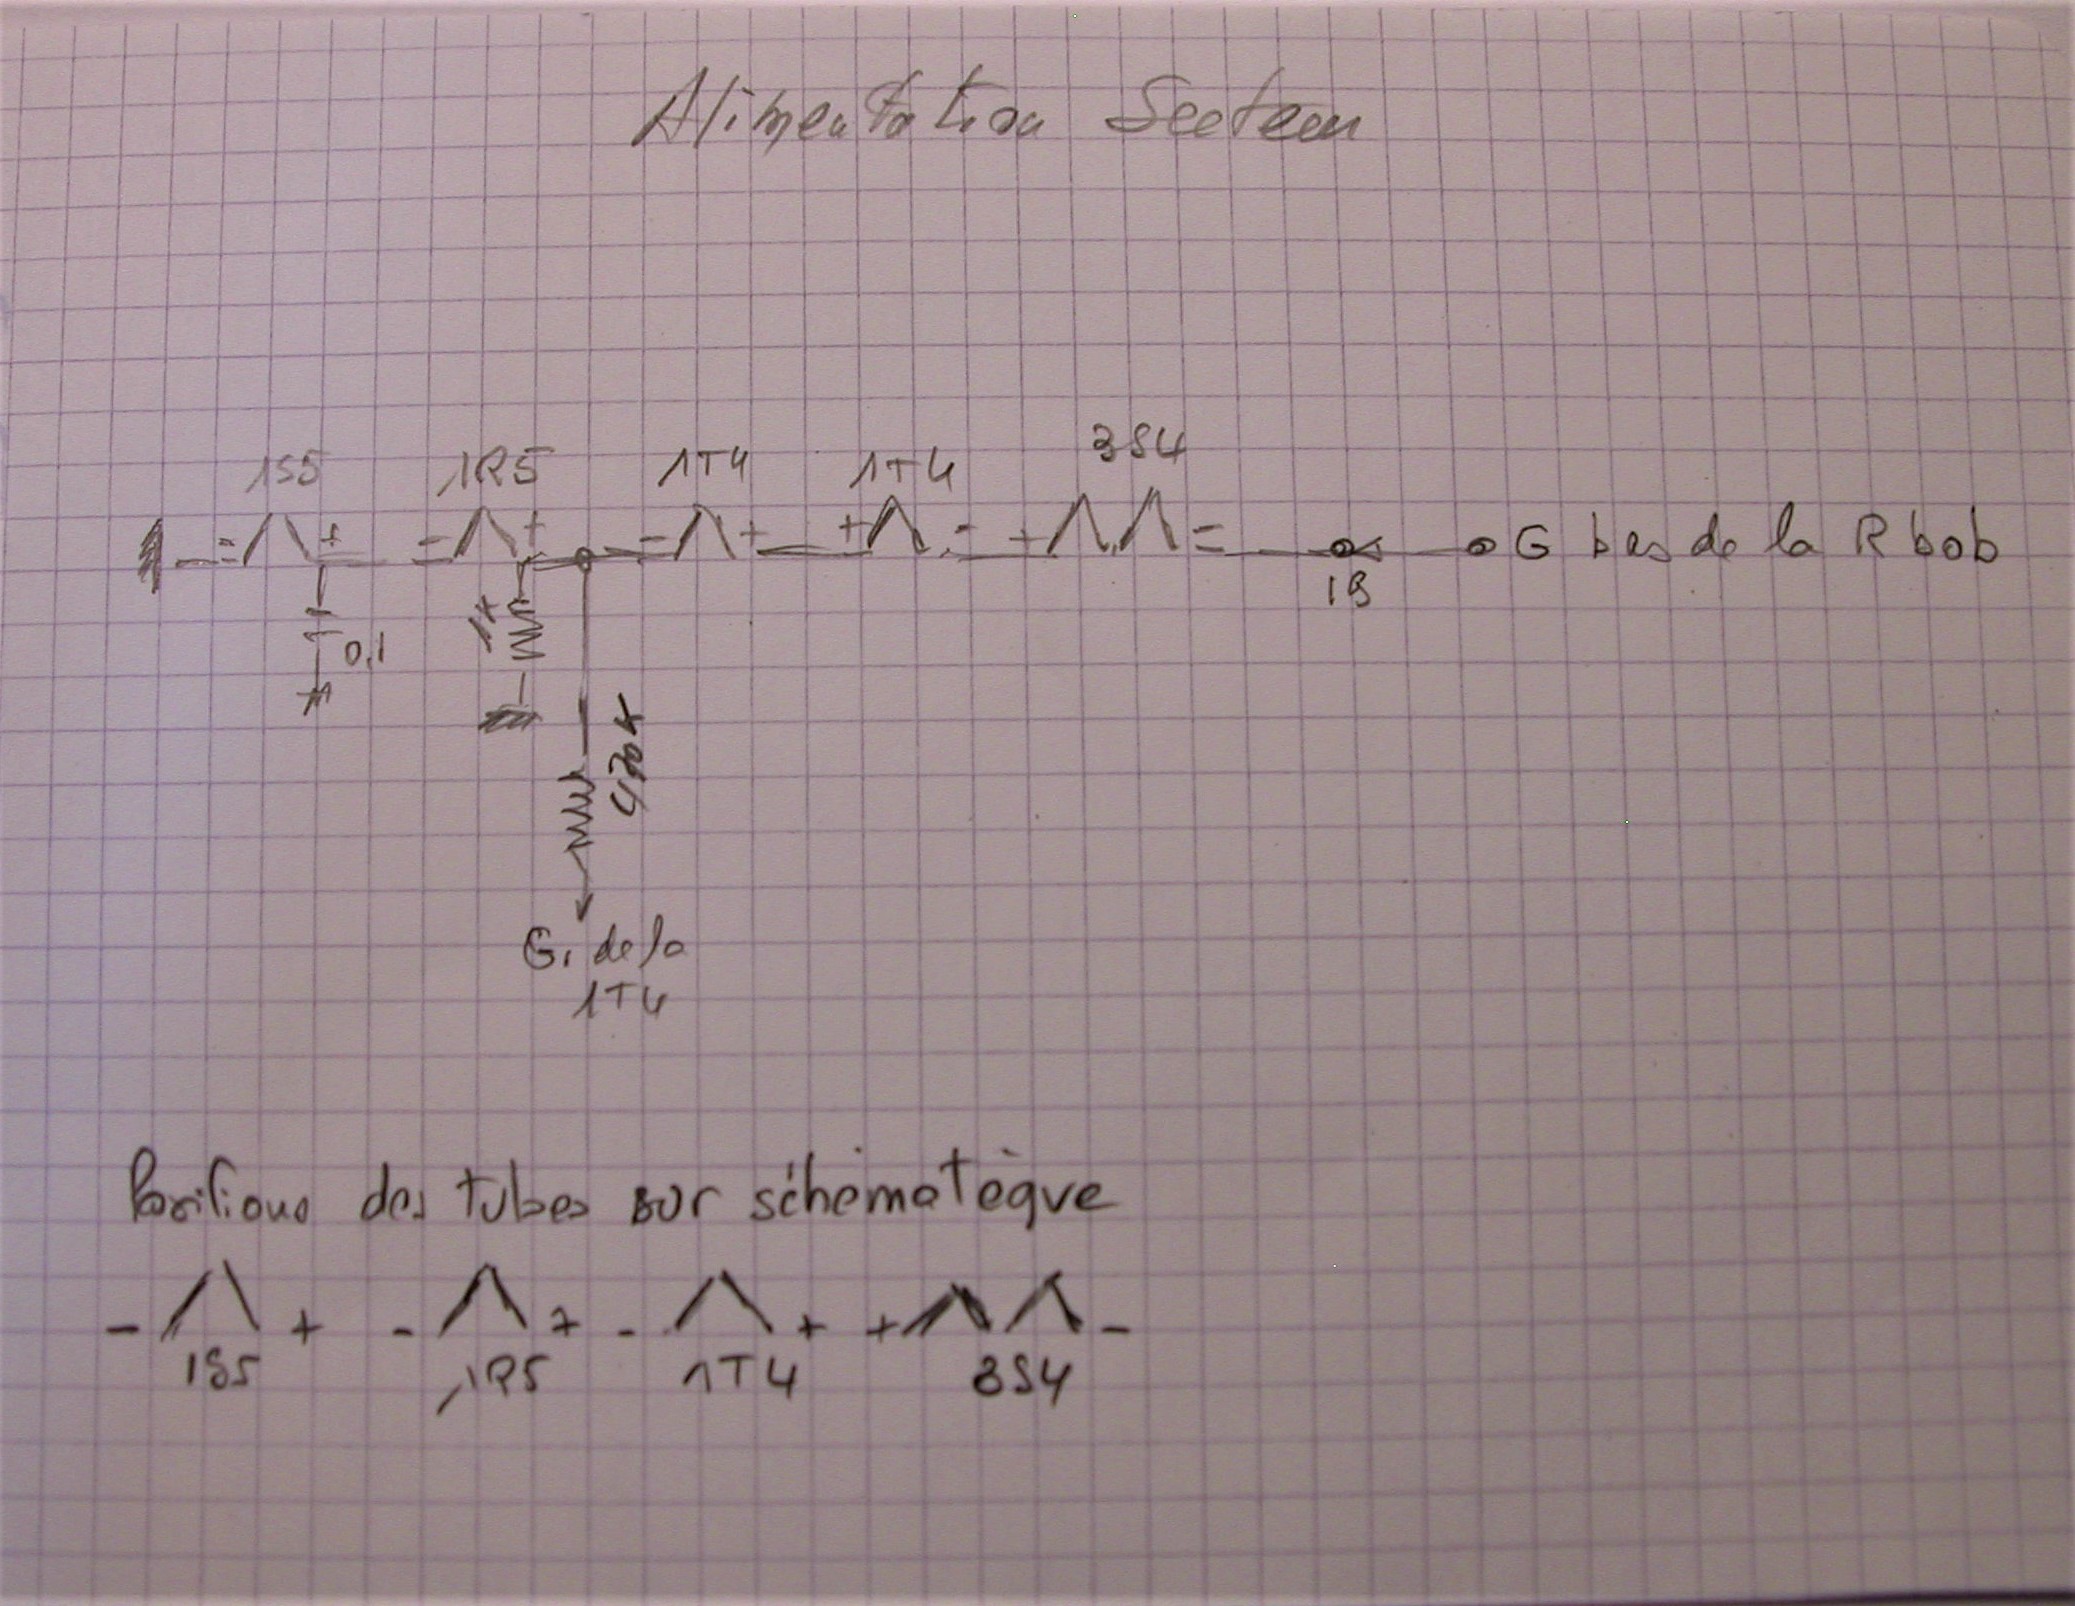 Alimentation Secteur
1S5 1R5 1T4 1T4 3S4
- + - + - + + - + -
G bas de la R bob
1B
1K
0,1
470K
G1 de la
1T4
Positions des tubes sur schématèque
- + - + - + + -
1S5 1R5 1T4 3S4